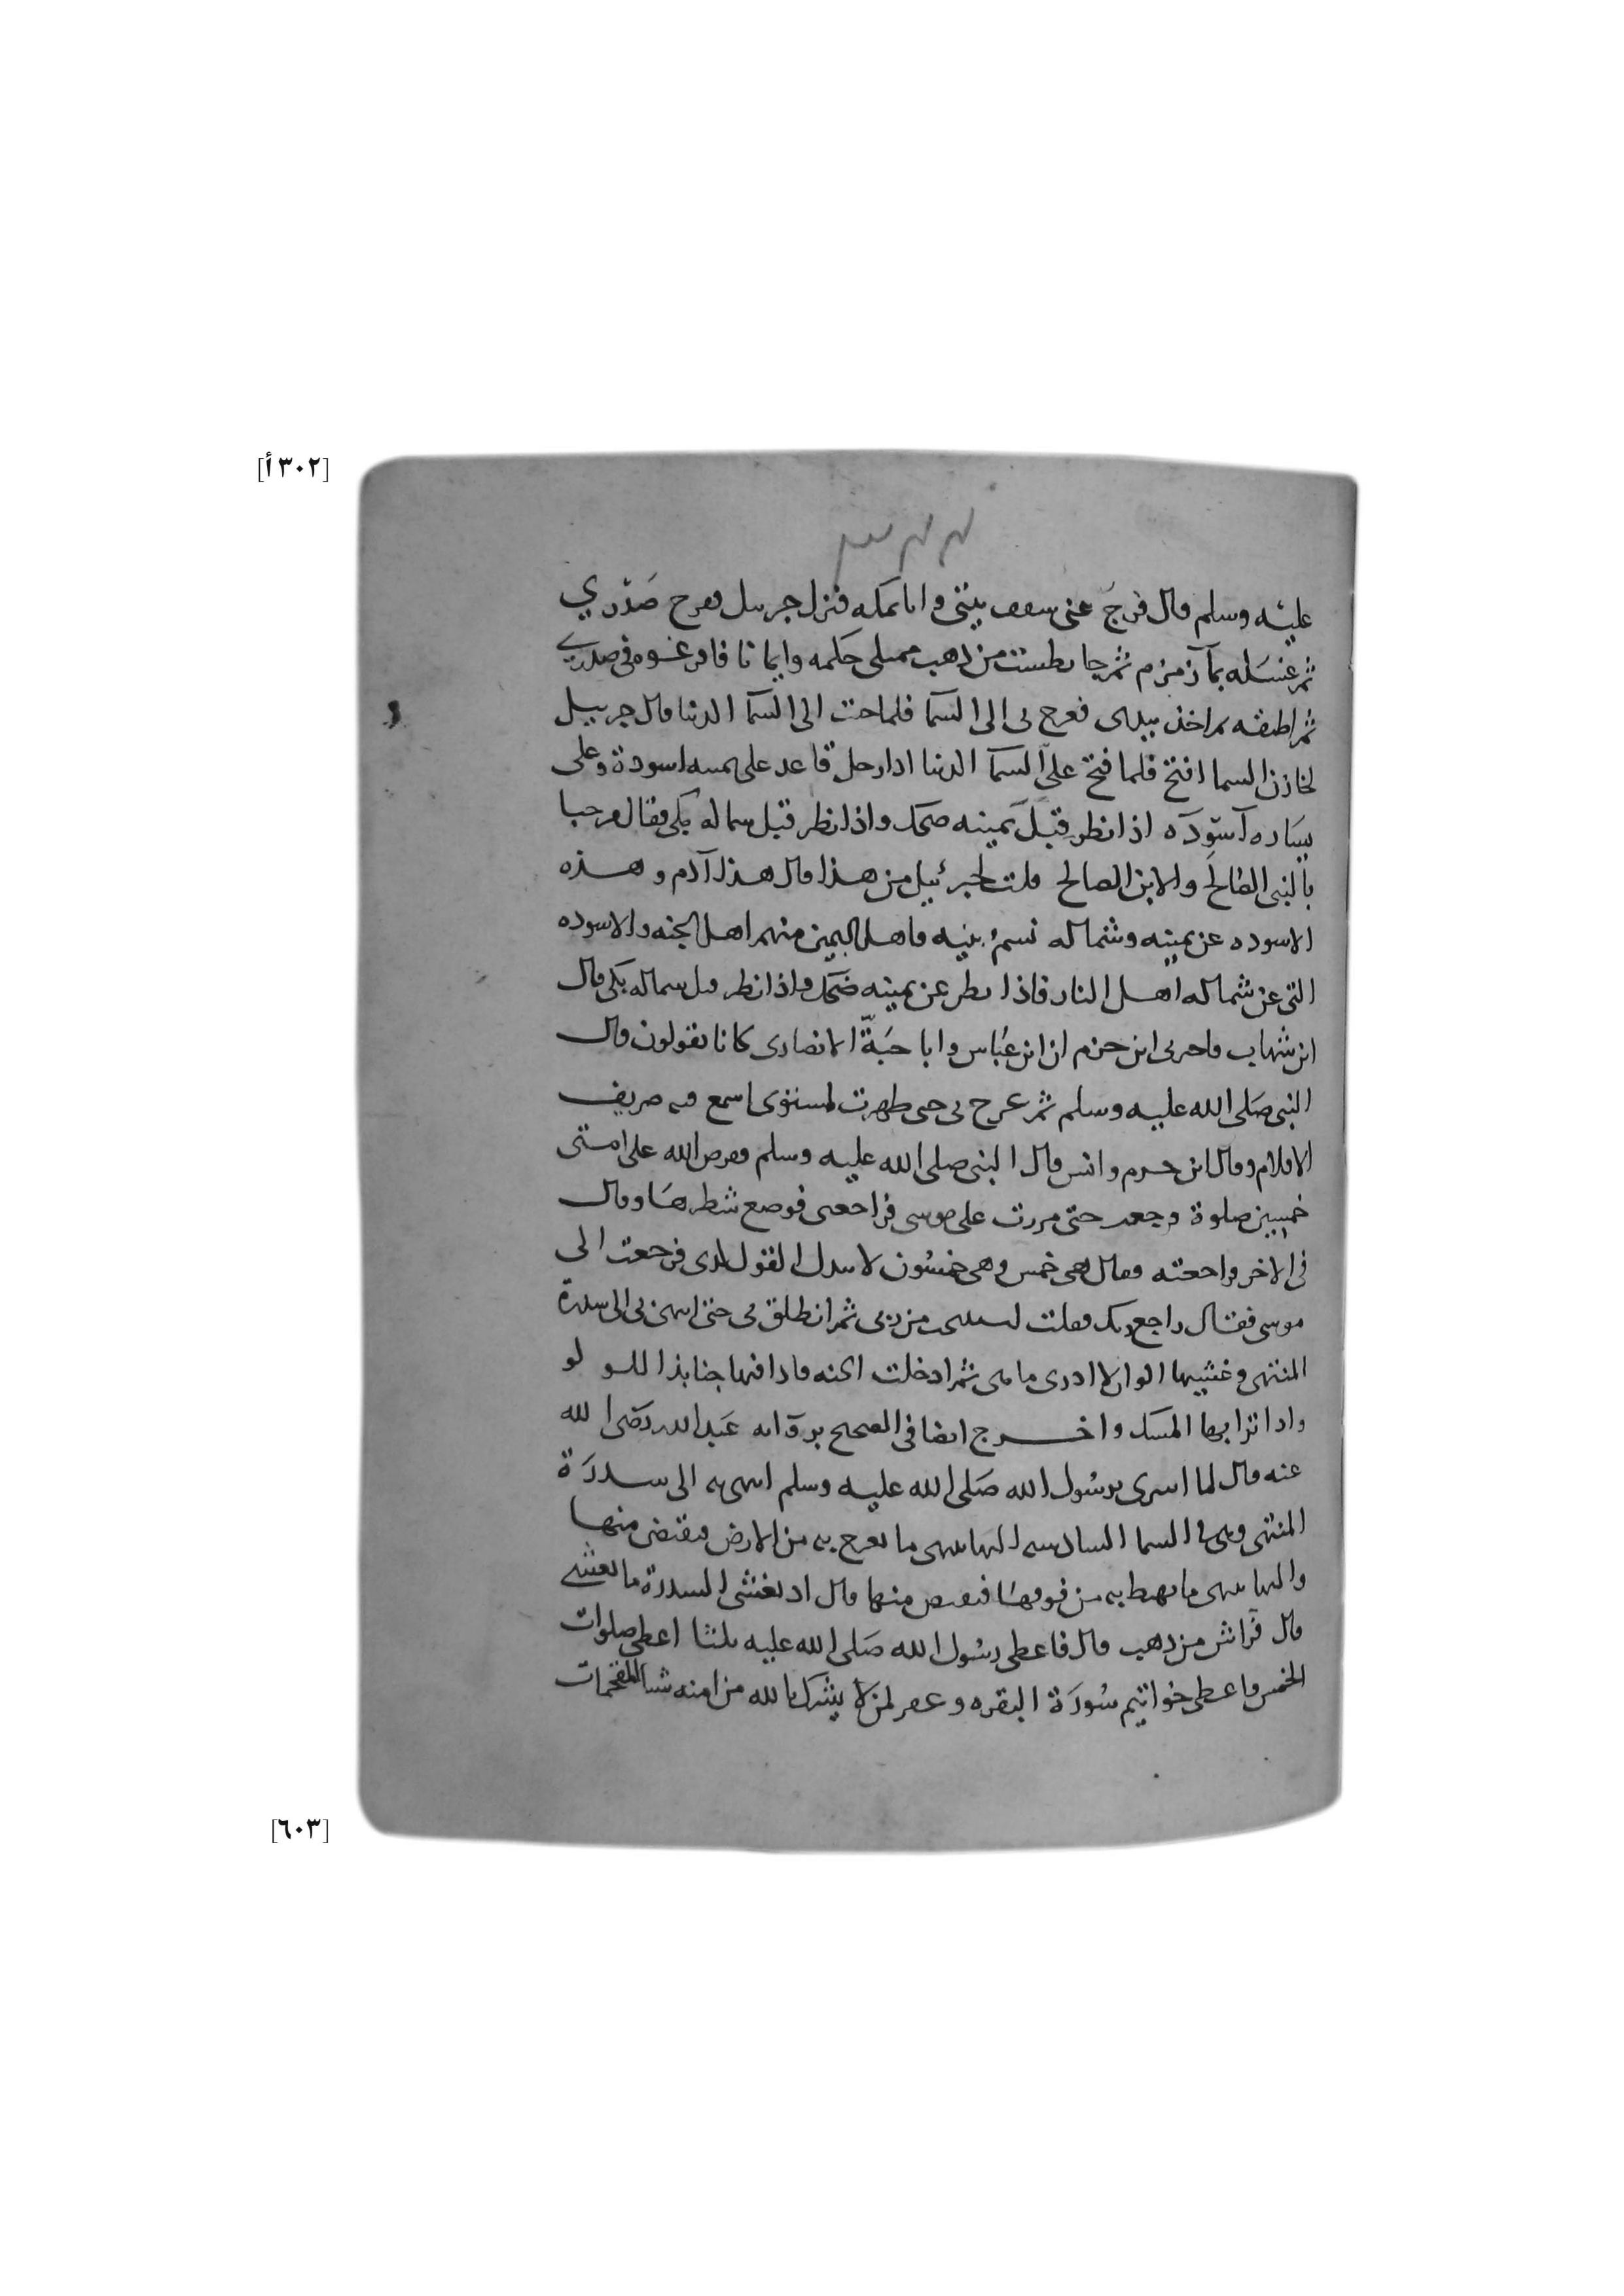 [٣٠٢أ]
عليه وسلم قال فرج عن سقف بيتى وانا بمكه فنزل جبريل ففرج صدري
ثم غسله بمآ زمزم ثم جا بطست من ذهب ممتلى حكمه وايمانا فافرغه فى صدري
ثم اطبقه ثم اخذ بيدى فعرج بى الى السما فلما جئت الى السما الدنيا قال جبريل
لخازن السما افتح فلما فتح علىّ السمآ الدنيا اذا رجل قاعد على يمينه اسودة وعلى
يساره آسودَه اذا نظر قِبَلَ يمينه ضحك واذا نظر قبل شماله بكى فقال مرحبا
بالنبى الصَالح والابن الصالح قلت لجبرئيل من هذا قال هذا آدم وهذه
الاسوده عن يمينه وشماله نسمُ بنيه فاهل اليمين منهم اهل الجنه والاسوده
التى عن شماله اهل النار فاذا نظر عن يمينه ضحك واذا نظر قبل شماله بكى قال
ابن شهاب واخبرنى ابن حزم ان ابن عبَاس وابا حبَةّ الانصارى كانا يقولون قال
النبى صَلى الله عليه وسلم ثم عرج بى حتى ظهرت لمستوى اسمع فيه صريف
الاقلام وقال ابن حزم وانس قال النبى صلى الله عليه وسلم ففرض الله على امتى
خمسين صلوة فرجعت حتى مررت على موسى فراجعنى فوضع شطرهَا وقال
فى الاخر فراجعته فقال هى خمس وهى خمسُون لا يبدل القول لدى فرجعت الى
موسى فقال راجع ربك فقلت استحييت من ربى ثم انطلق بى حتى انتهى بى الى سدرة
المنتهى وغشيها الوان لا ادرى ما هى ثم ادخلت الجنه فاذا فيها جنابذ اللولو
واذا ترابها المسك واخرج ايضا فى الصحيح بروايه عَبد الله رَضى الله
عنه قال لما اسرى برسُول الله صَلى الله عليه وسلم انتهى به الى سدرَة
المنتهى وهى فى السما السادسه اليها ينتهى ما يعرج به من الارض فيقبض منها
واليها ينتهى ما يهبط به من فوقهَا فيقبض منها قال اذ يغشى السدرة ما يغشى
قال فراش من ذهب قال فاعطى رسُول الله صَلى الله عليه ثلثا اعطى صلوات
الخمس واعطى خواتيم سُورَة البقره وغفر لمن لا يشرك بالله من امته شيا المقحمات
[٦٠٣]